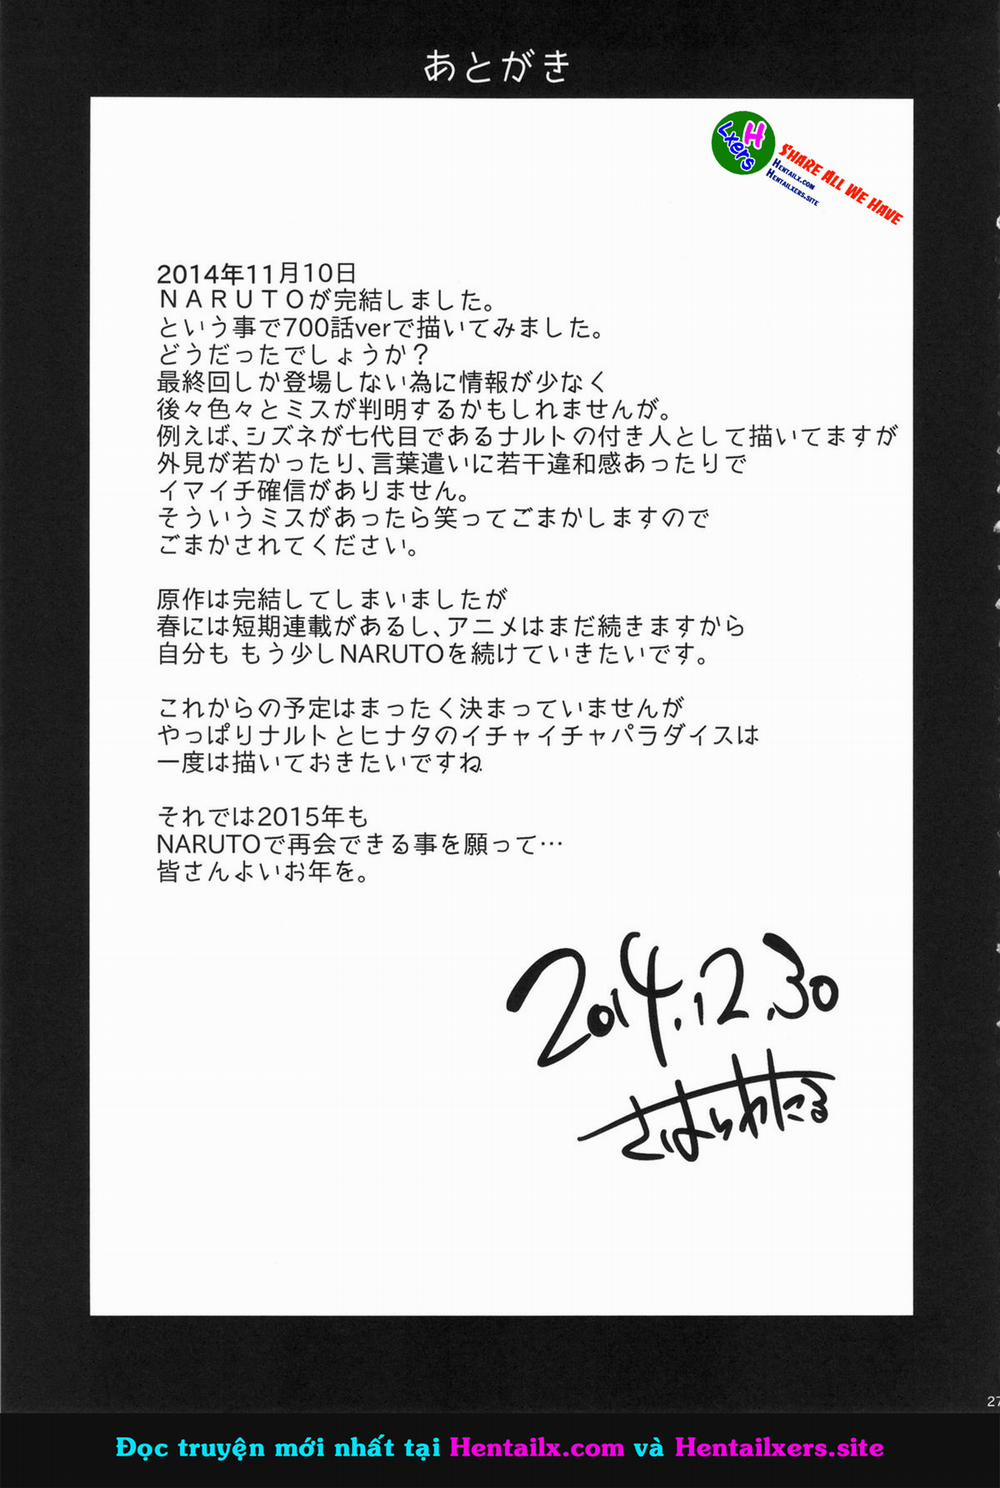 あとがき
H
Lxers
Share All We Have
Hentailx.com
Hentailxers.site
2014年11月10日
ＮＡＲＵＴＯが完結しました。
という事で700話verで描いてみました。
どうだったでしょうか？
最終回しか登場しない為に情報が少なく
後々色々とミスが判明するかもしれませんが。
例えば、シズネが七代目であるナルトの付き人として描いてますが
外見が若かったり、言葉遣いに若干違和感あったりで
イマイチ確信がありません。
そういうミスがあったら笑ってごまかしますので
ごまかされてください。
原作は完結してしまいましたが
春には短期連載があるし、アニメはまだ続きますから
自分も もう少しNARUTOを続けていきたいです。
これからの予定はまったく決まっていませんが
やっぱりナルトとヒナタのイチャイチャパラダイスは
一度は描いておきたいですね
それでは2015年も
NARUTOで再会できる事を願って…
皆さんよいお年を。
2014.12.30
さはらわたる
27
Đọc truyện mới nhất tại Hentailx.com và Hentailxers.site